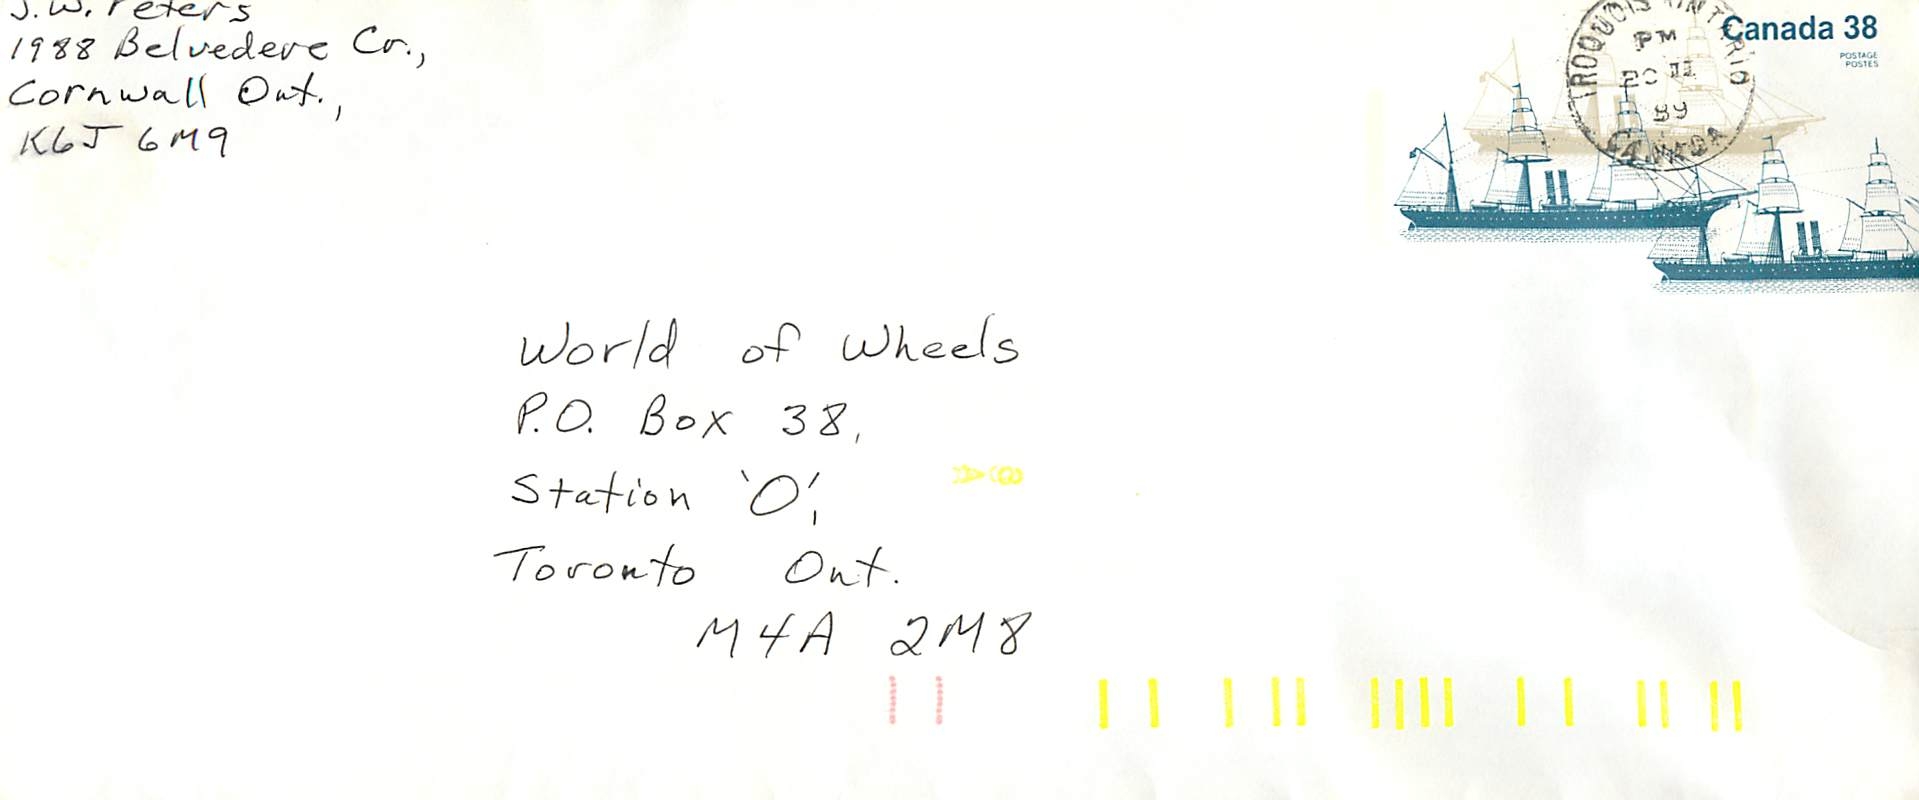 J.W. Peters
1988 Belvedere Cr.,
Cornwall Ont.,
K6J 6M9
IROQUOIS ONTARIO
PM
20 II
89
CANADA
Canada 38
POSTAGE
POSTES
World of Wheels
P.O. Box 38,
Station 'O',
Toronto Ont.
M4A 2M8